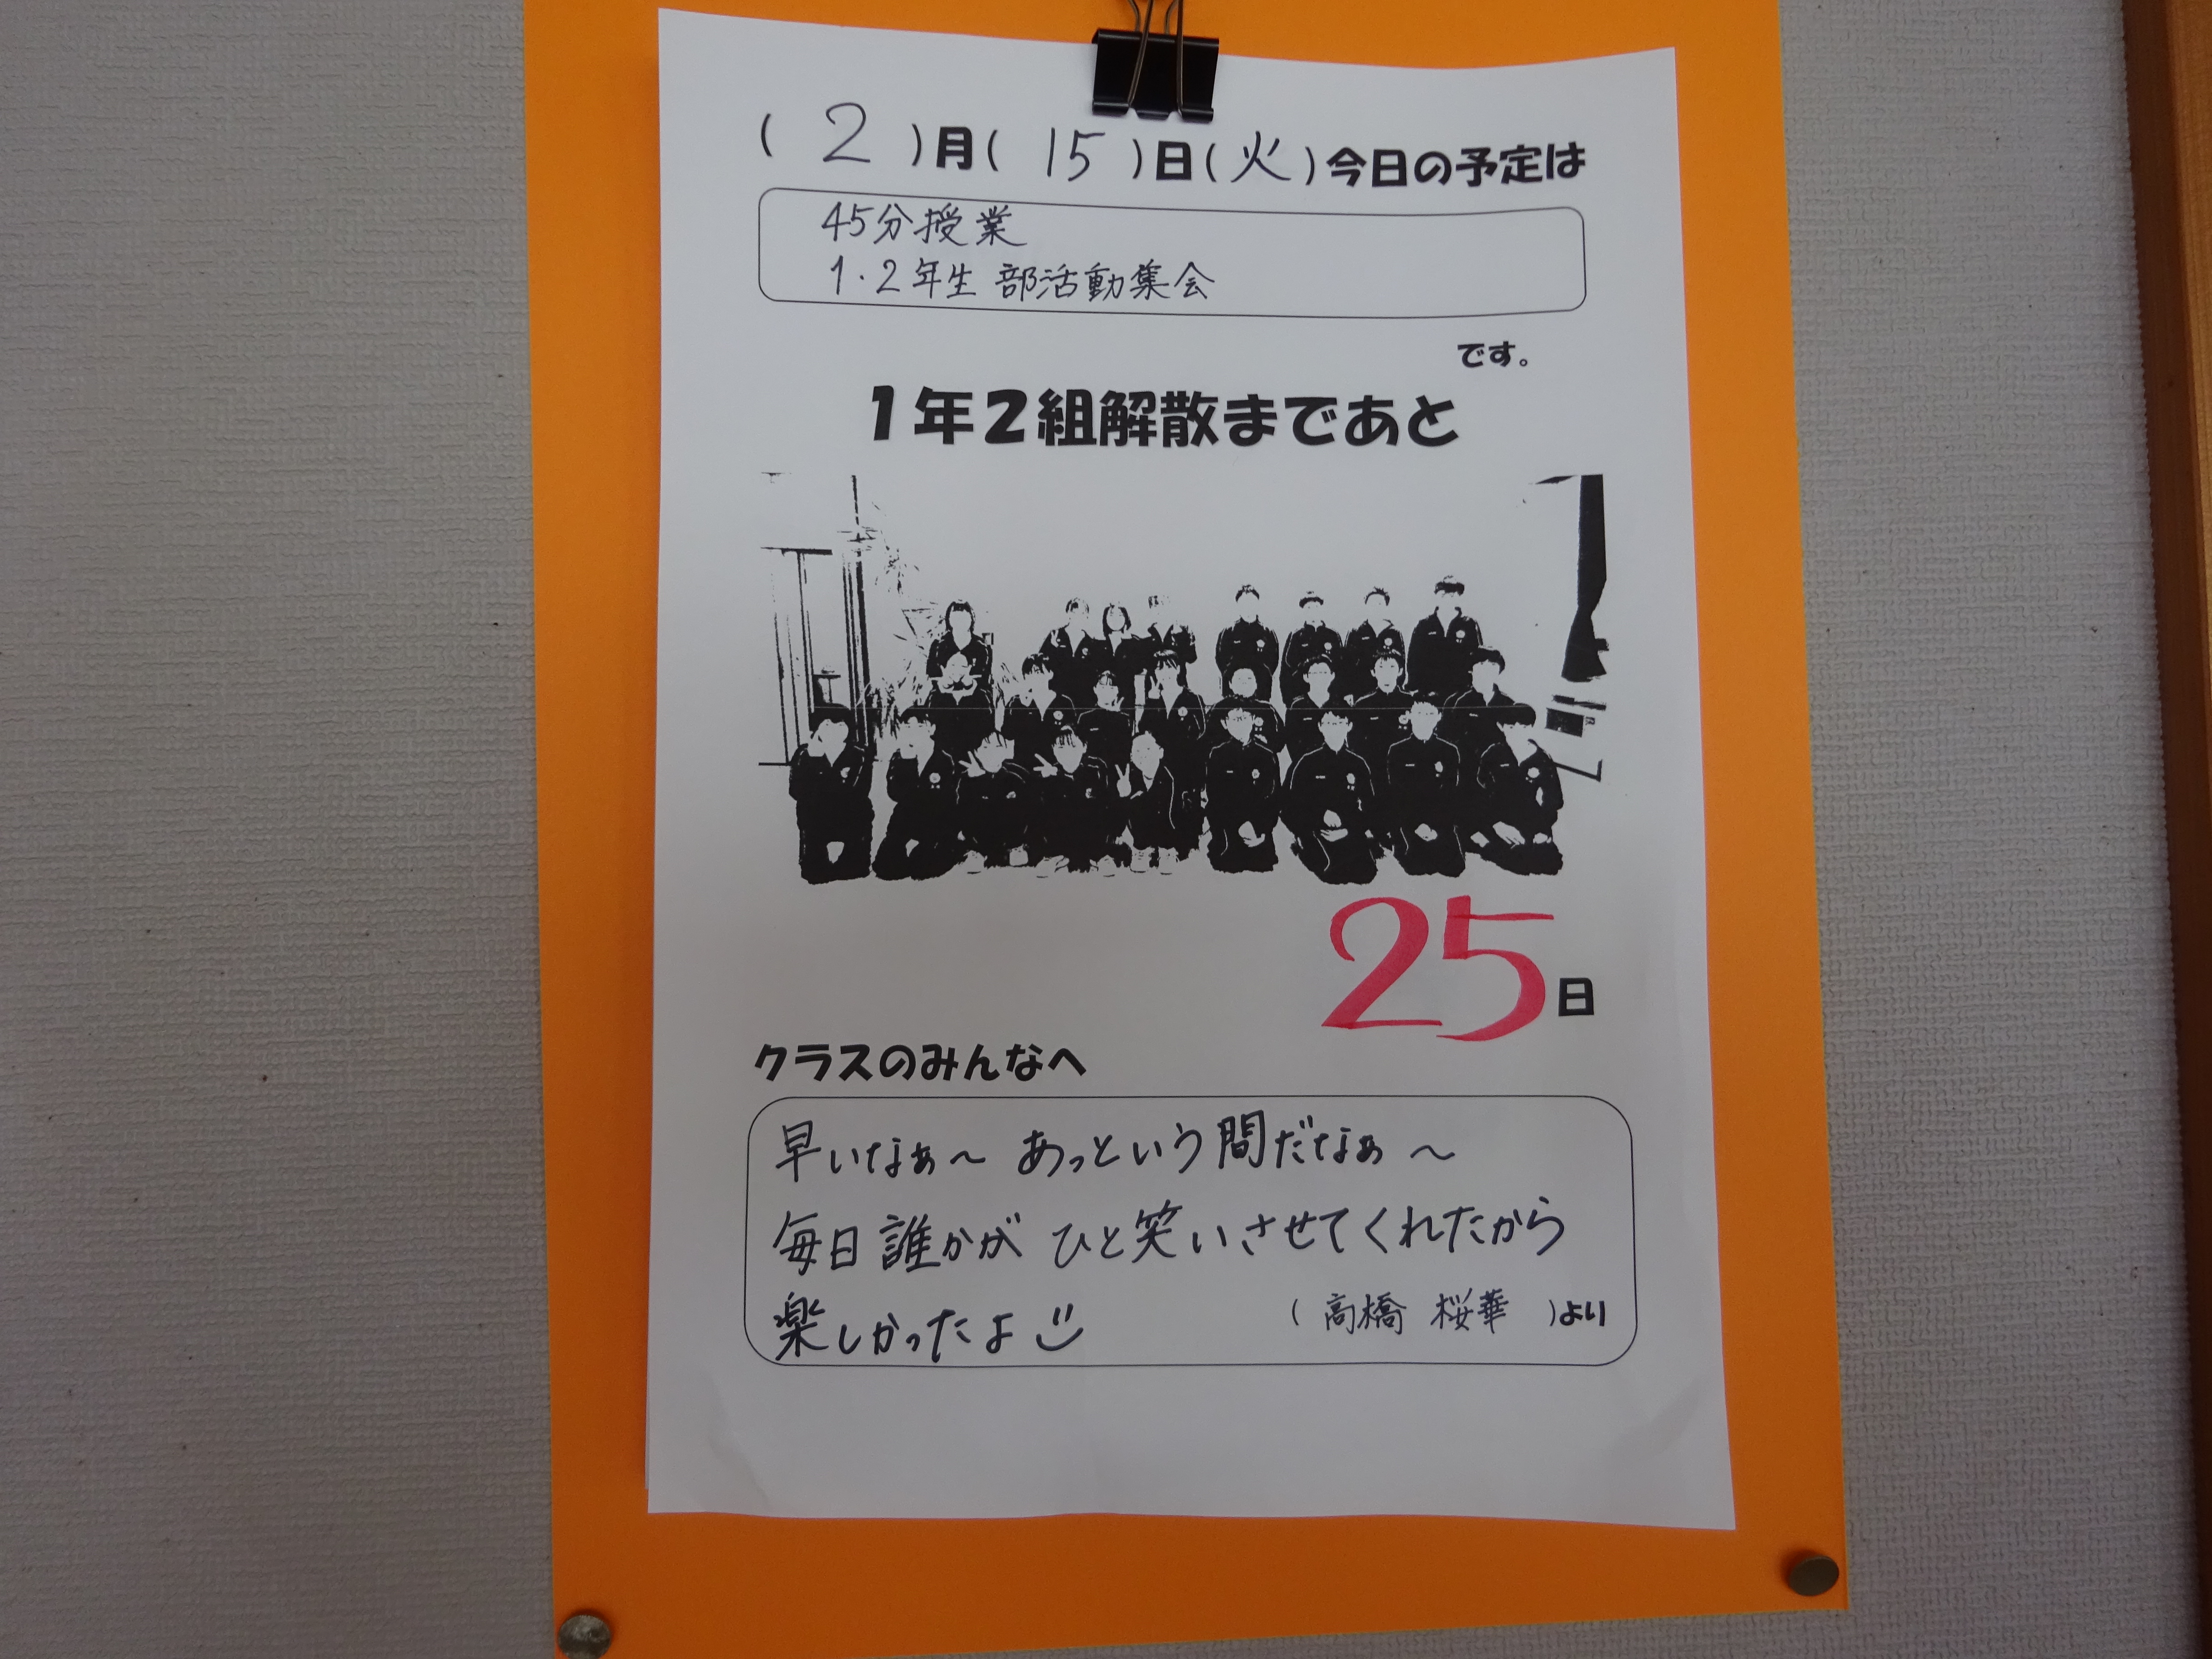 ( 2 )月( 15 )日(火)今日の予定は
45分授業
1・2年生 部活動集会
です。
1年2組解散まであと
25日
クラスのみんなへ
早いなぁ～ あっという間だなぁ～
毎日誰かが ひと笑いさせてくれたから
楽しかったよ
( 高橋 桜華 )より